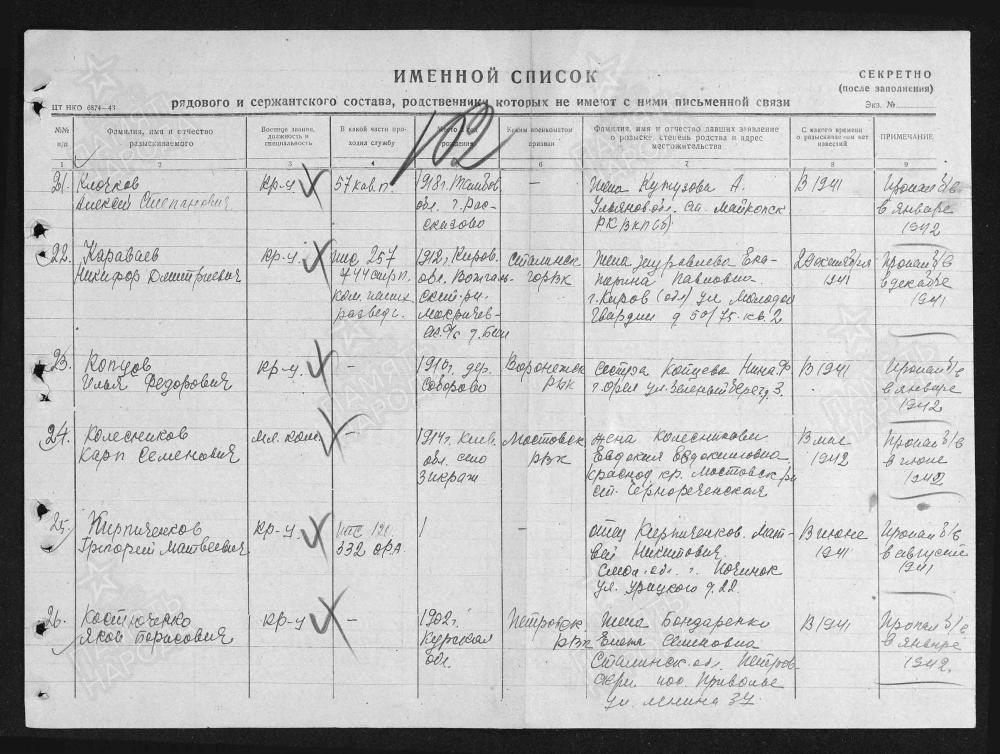 ИМЕННОЙ СПИСОК
СЕКРЕТНО
(после заполнения)
ЦТ НКО 6874—43
рядового и сержантского состава, родственники которых не имеют с ними письменной связи
Экз. №
102
№№ п/п
Фамилия, имя и отчество разыскиваемого
Военное звание, должность и специальность
В какой части проходил службу
Место и год рождения
Каким военкоматом призван
Фамилия, имя и отчество давших заявление о розыске, степень родства и адрес местожительства
С какого времени о разыскиваемом нет известий
ПРИМЕЧАНИЕ
1 2 3 4 5 6 7 8 9
21. Клочков кр-ц 57 кав.п. 1918г. Тамбов. — Жена А. В 1941 Пропал б/в
Алексей Степанович обл. г. Рас- Ульянов обл. ст. Майкопск в январе
сказово РК ВКП(б) 1942
22. Караваев кр-ц ппс 257 1912г. Киров. Сталинск Жена Журавлева Ека- 1941 Пропал б/в
Никифор Дмитриевич 444 обл. горвк терина Павловна в декабре
г. Киров (обл) ул Молодой 1941
разведч. Гвардии д 50/75 кв. 2
23. Копцов кр-ц — 1910г. дер. Воронежск Сестра Копцева Нина Ф В 1941 Пропал б/в
Илья Федорович Соборово рвк г. Орел ул. Зеленый берег д. 3. в январе
1942
24. Колесников мл. ком — 1914г. Киев. Мостовск Жена Колесникова В мае Пропал б/в
Карп Семенович обл. село рвк Евдокия Евдокимовна 1942 в июне
Зикрач Краснод кр. Мостовск р-н 1942
ст. Чернореченская
25. Кирпиченков кр-ц ппс — отец Кирпиченков Мат- В июне Пропал б/в
Григорий Матвеевич 532 вей Никитович 1941 в августе
Смол. обл. г. Починок 1941
ул. Урицкого д. 22
26. Костюченко кр-ц — 1902г. Петровск Жена Бондаренко В 1941 Пропал б/в
Яков Тарасович Курская рвк Елена Семеновна в январе
обл. Сталинск. обл. Петров- 1942.
пос Приволье
ул. Ленина 37